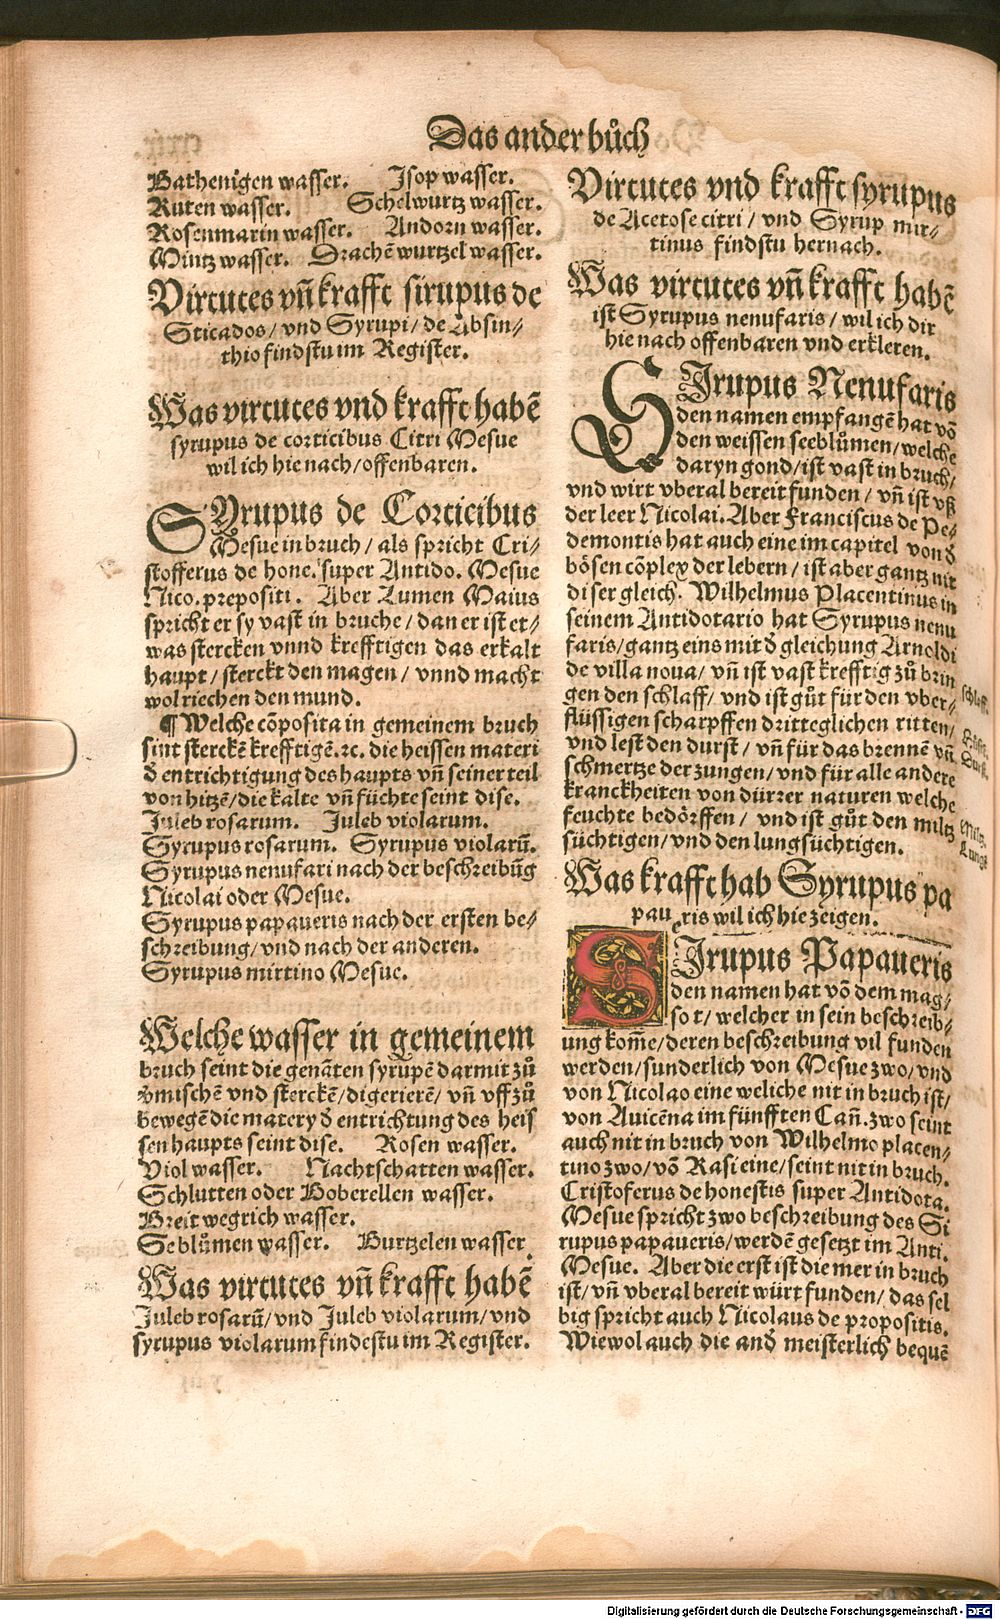 Das ander bůch
Bathenigen wasser. Isop wasser.
Ruten wasser. Schelwurtz wasser.
Rosenmarin wasser. Andorn wasser.
Mintz wasser. Drachē wurtzel wasser.
Virtutes vñ krafft sirupus de
Sticados/ vnd Syrupi/ de Absin-
thio findstu im Register.
Was virtutes vnd krafft habē
syrupus de corticibus Citri Mesue
wil ich hie nach/ offenbaren.
SYrupus de Corticibus
Mesue in bruch/ als spricht Cri-
stofferus de hone. super Antido. Mesue
Nico. prepositi. Aber Lumen Maius
spricht er sy vast in bruche/ dan er ist et-
was stercken vnnd krefftigen das erkalt
haupt/ sterckt den magen/ vnnd macht
wolriechen den mund.
¶ Welche cōposita in gemeinem bruch
sint sterckē krefftigē. ⁊c. die heissen materi
d̄ entrichtigung des haupts vñ seiner teil
von hitzē/ die kalte vñ füchte seint dise.
Juleb rosarum. Juleb violarum.
Syrupus rosarum. Syrupus violarū.
Syrupus nenufari nach der beschreibūg
Nicolai oder Mesue.
Syrupus papaueris nach der ersten be-
schreibung/ vnd nach der anderen.
Syrupus mirtino Mesue.
Welche wasser in gemeinem
bruch seint die genāten syrupē darmit zů
vmischē vnd sterckē/ digerierē/ vñ vff zů
bewegē die matery d̄ entrichtung des heis
sen haupts seint dise. Rosen wasser.
Viol wasser. Nachtschatten wasser.
Schlutten oder Boberellen wasser.
Breit wegrich wasser.
Seblůmen wasser. Burtzelen wasser.
Was virtutes vñ krafft habē
Juleb rosarū/ vnd Juleb violarum/ vnd
syrupus violarum findestu im Register.
Virtutes vnd krafft syrupus
de Acetose citri/ vnd Syrup mir-
tinus findstu hernach.
Was virtutes vñ krafft habē
ist Syrupus nenufaris/ wil ich dir
hie nach offenbaren vnd erkleren.
SIrupus Nenufaris
den namen empfangē hat vō
den weissen seeblůmen/ welche
daryn gond/ ist vast in bruch/
vnd wirt vberal bereit funden/ vñ ist vß
der leer Nicolai. Aber Franciscus de Pe-
demontis hat auch eine im capitel von d̄
bösen cōplex der lebern/ ist aber gantz nit
diser gleich. Wilhelmus Placentinus in
seinem Antidotario hat Syrupus nenu
faris/ gantz eins mit d̄ gleichung Arnoldi
de villa noua/ vñ ist vast krefftig zů brin
gen den schlaff/ vnd ist gůt für den vber-
flüssigen scharpffen dritteglichen ritten/
vnd lest den durst/ vñ für das brennē vñ
schmertze der zungen/ vnd für alle andere
kranckheiten von dürrer naturen welche
feuchte bedörffen/ vnd ist gůt den miltz
süchtigen/ vnd den lungsüchtigen.
schlaff.
Durst.
Miltz.
Lungē
Was krafft hab Syrupus pa
paueris wil ich hie zeigen.
SIrupus Papaueris
den namen hat vō dem mag-
sot/ welcher in sein beschreib-
ung kom̄e/ deren beschreibung vil funden
werden/ sunderlich von Mesue zwo/ vnd
von Nicolao eine weliche nit in bruch ist/
von Auicēna im fünfften Cañ. zwo seint
auch nit in bruch von Wilhelmo placen-
tino zwo/ vō Rasi eine/ seint nit in bruch.
Cristoferus de honestis super Antidota.
Mesue spricht zwo beschreibung des Si
rupus papaueris/ werdē gesetzt im Anti.
Mesue. Aber die erst ist die mer in bruch
ist/ vñ vberal bereit würt funden/ das sel
big spricht auch Nicolaus de propositis.
Wiewol auch die and̄ meisterlich bequē
Digitalisierung gefördert durch die Deutsche Forschungsgemeinschaft - DFG